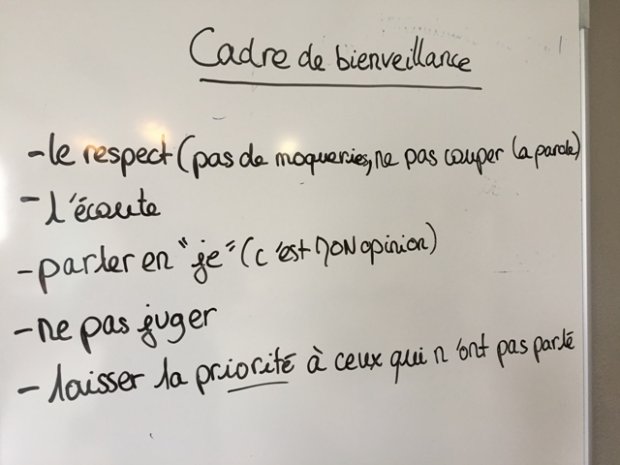 Cadre de bienveillance
- le respect (pas de moqueries, ne pas couper la parole)
- l'écoute
- parler en "je" (c'est MON opinion)
- ne pas juger
- laisser la priorité à ceux qui n'ont pas parlé